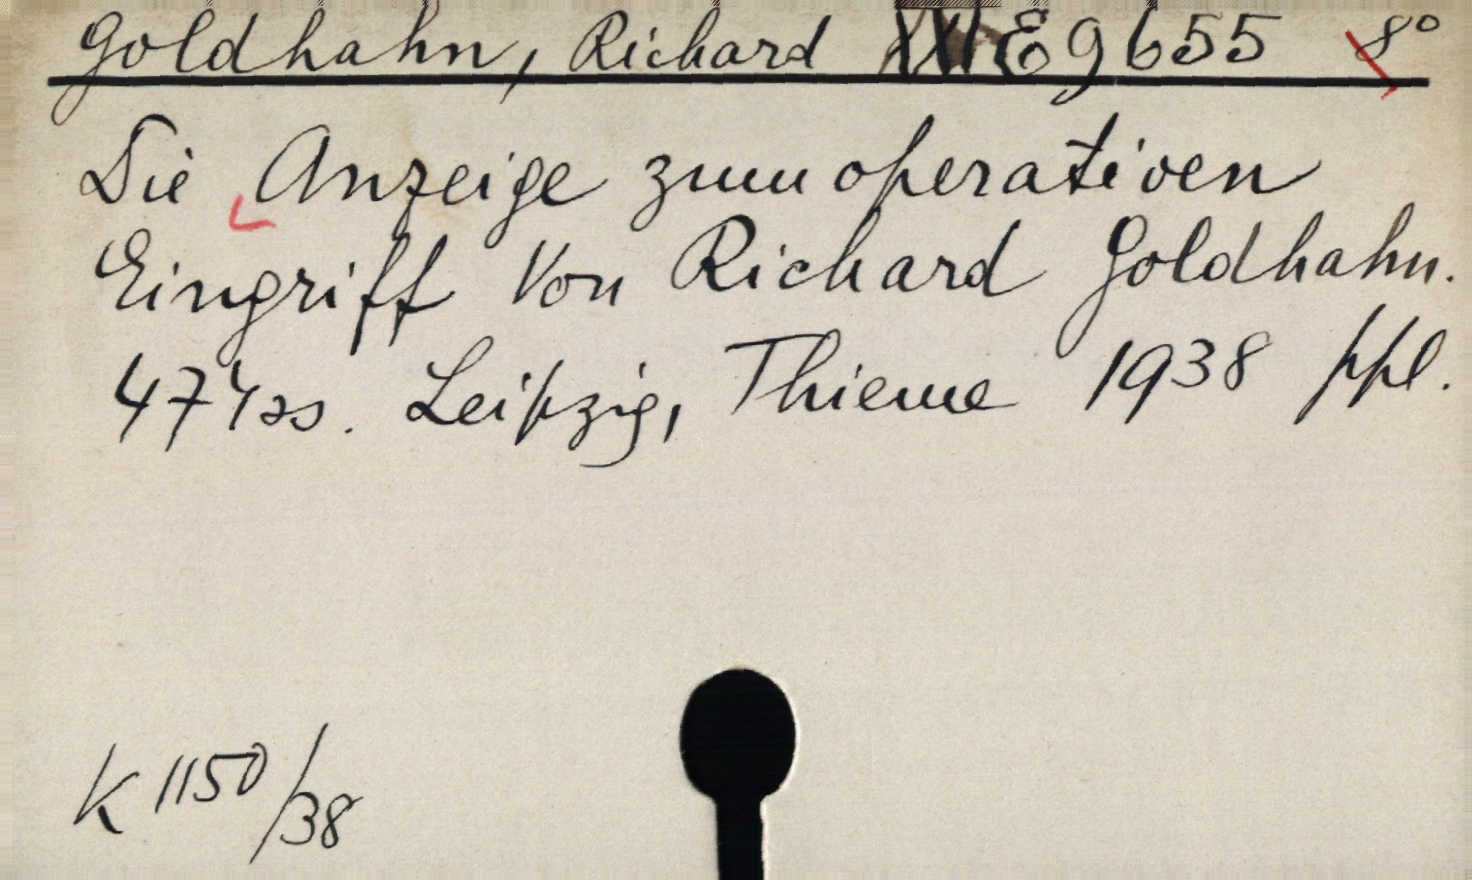 Goldhahn, Richard XXI E 9655 8°
Die Anzeige zum operativen
Eingriff Von Richard Goldhahn.
474 ss. Leipzig, Thieme 1938 ppl.
K 1150/38